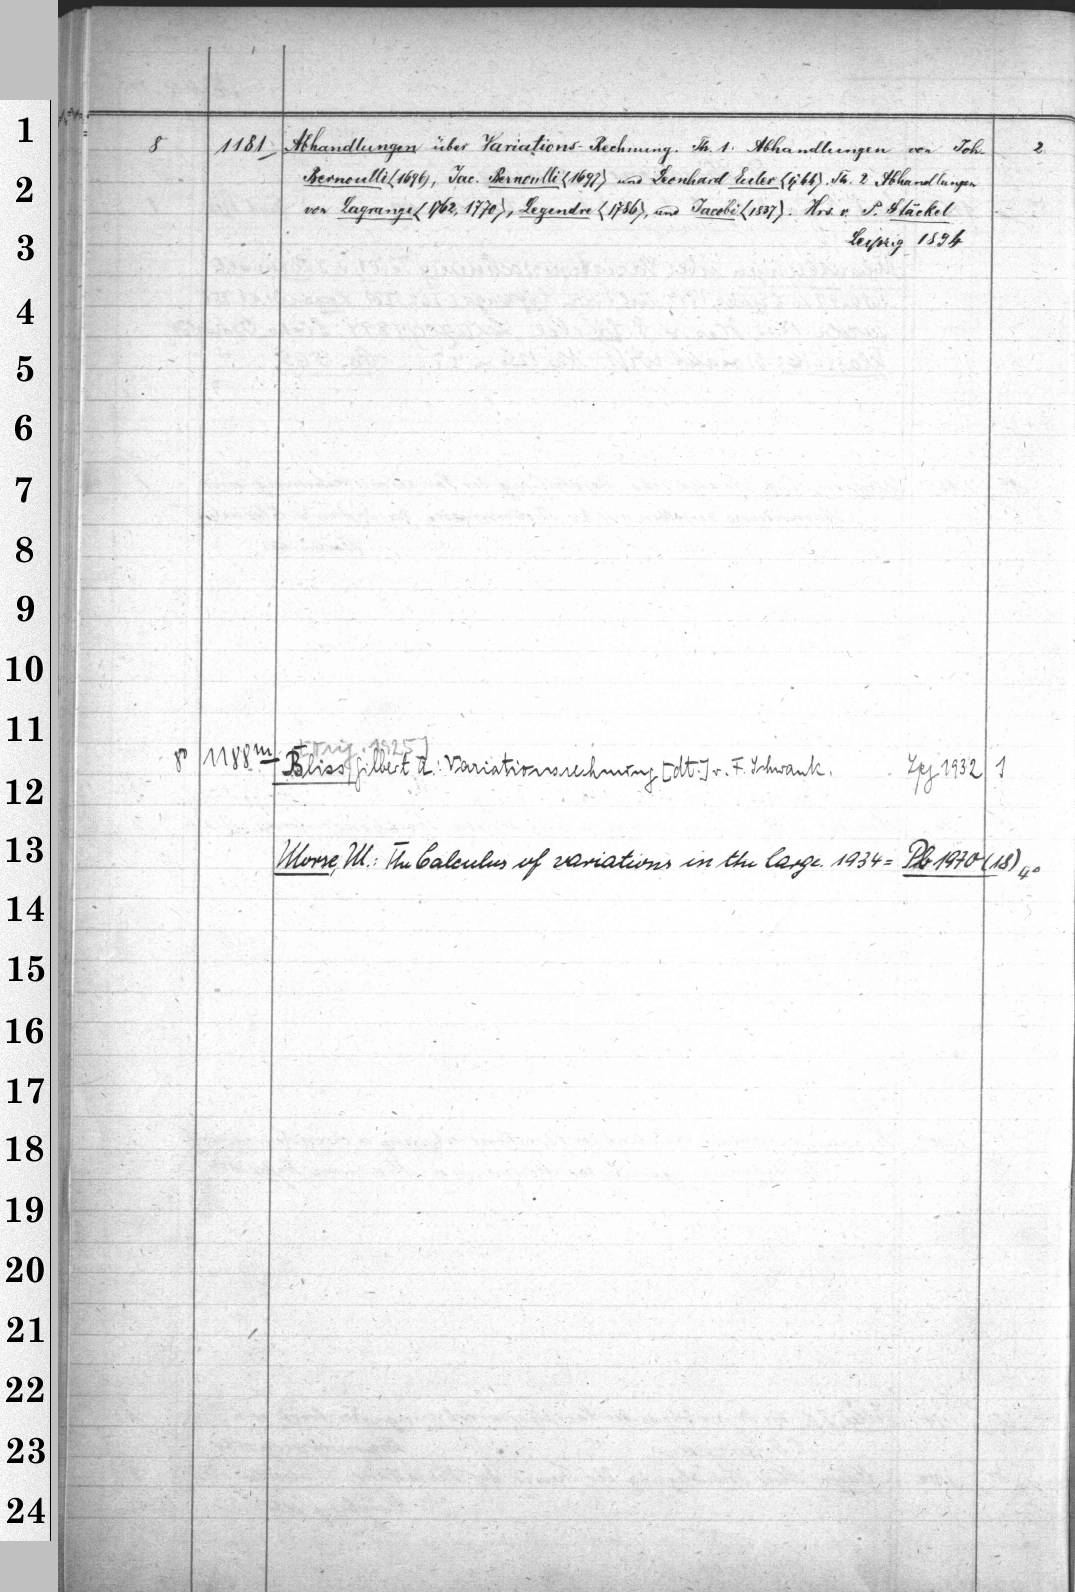 1
8 1181 Abhandlungen über Variations-Rechnung. Th. 1. Abhandlungen von Joh. 2
2
Bernoulli (1696), Jac. Bernoulli (1697) und Leonhard Euler (1744). Th. 2 Abhandlungen
von Lagrange (1762, 1770), Legendre (1786), und Jacobi (1837). Hrs. v. P. Stäckel
3
Leipzig 1894
4
5
6
7
8
9
10
11
[Orig. 1925]
8° 1188m Bliss, Gilbert A.: Variationsrechnung [dt.] v. F. Schwank. Lpz 1932 1
12
13
Morse, M.: The Calculus of variations in the large. 1934 = Pb 1970 (18) 4°
14
15
16
17
18
19
20
21
22
23
24